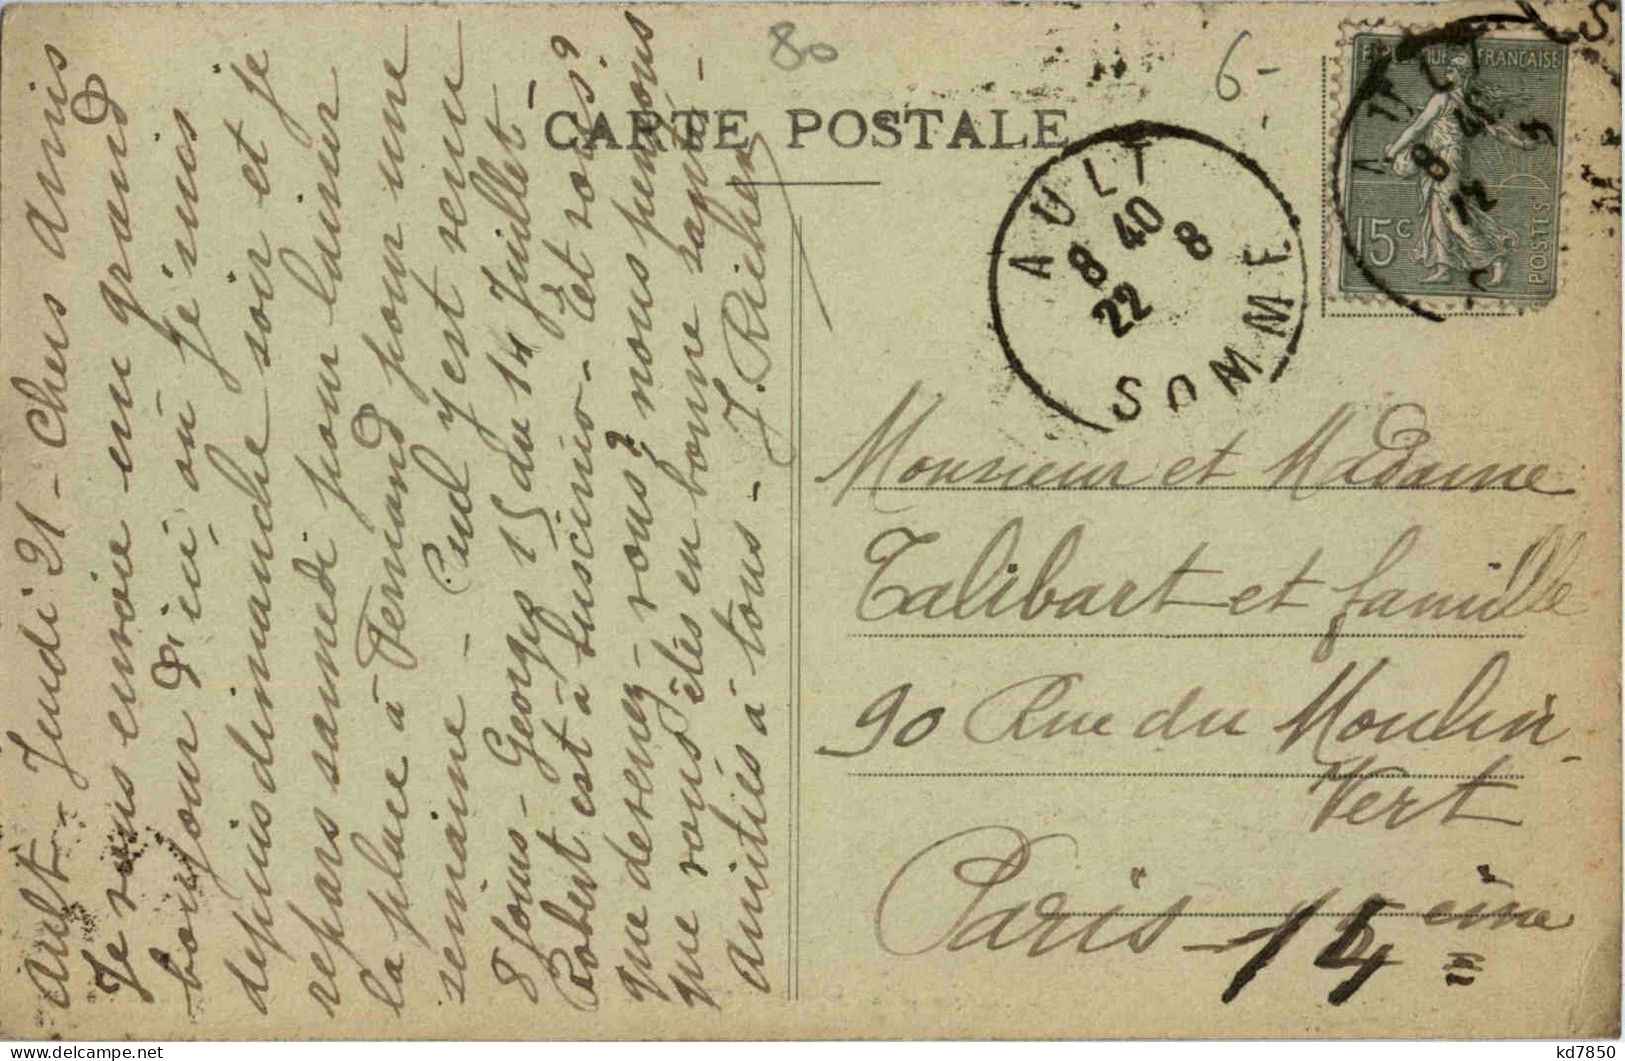 80
6-
CARTE POSTALE
REPUBLIQUE FRANCAISE
15c
POSTES
AULT
8 40
22 8
SOMME
Ault - Jeudi 21 - Chers Amis
Je vous envoie un grand
bonjour d'ici où je suis
depuis dimanche soir et je
repars samedi pour laisser
la place à Fernand pour une
semaine - Paul y est venu
8 jours - Georges 15 du 14 Juillet -
Robert est à Suscinio - Et vous?
que devenez-vous? nous pensons
que vous êtes en bonne santé -
amitiés à tous - J. Richer
Monsieur et Madame
Talibart et famille
90 Rue du Moulin-
Vert
Paris - 14 eme
kd7850